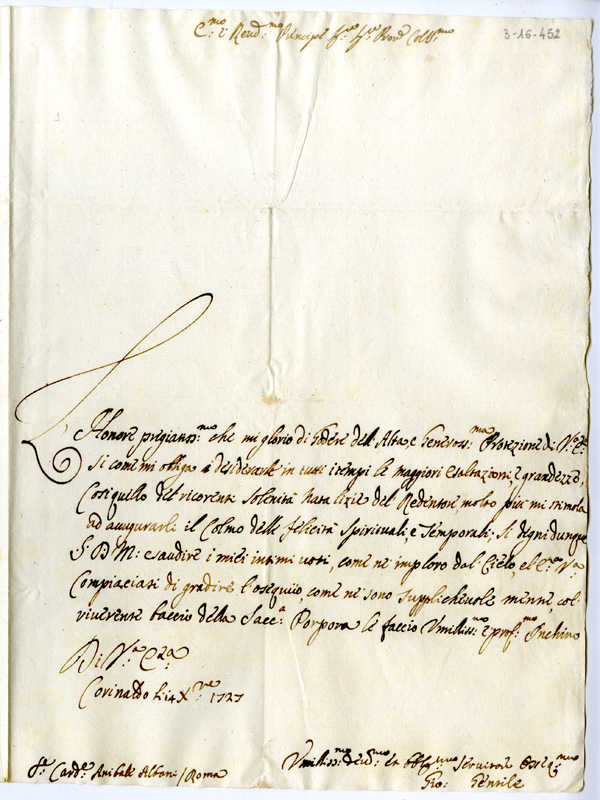 3-16-452
E.mo e Reud.mo Principe Sig.re Sig.re Pron.e Coll.mo
L'Honore pregiatiss.mo che mi glorio di godere dell'Alta, e Generosss.ma Protezione di V.a E.za
si come mi obliga a desiderarle in tutti i tempi le maggiori esaltazioni, e grandezze,
Cosi quello del ricorrente Solenità Natalizie del Redentore molto più mi stimola
ad augurarle il Colmo delle felicità Spirituali, e Temporali; si degni dunque
S. D. M: esaudire i miei intimi uoti, come ne imploro dal Cielo, e l'E.za V.a
Compiacciasi di gradire l'osequiio, come ne sono supplicheuole mentre col
riuerente baccio della Sacr.a Porpora le faccio Vmiliss.mo e prof.mo Inchino
Di V.a E.za
Corinaldo li 14 X.bre 1727
S.r Card.le Anibale Albani / Roma
Vmiliss.mo deu.mo et obblig.mo Seruitore Osseq.mo
Gio: Gentile